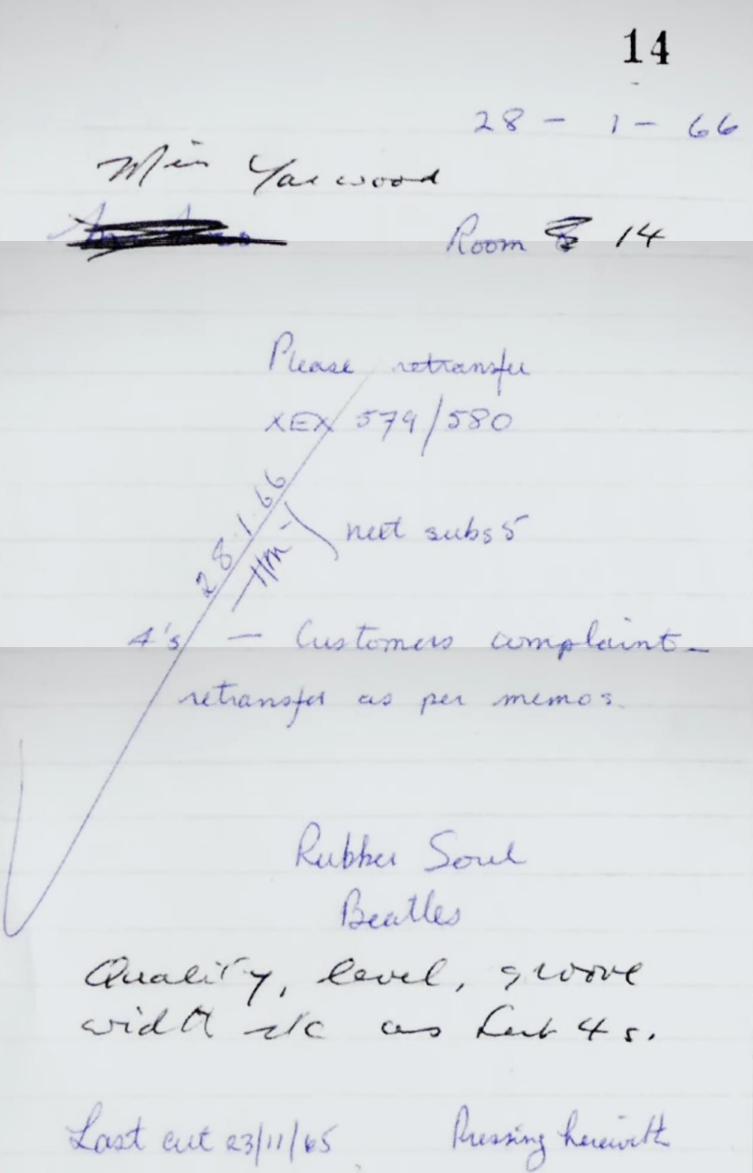 14
28 - 1 - 66
Miss Yarwood
Room 14
Please retransfer
XEX 579/580
28.1.66
next subs 5
4's — Customers complaint –
retransfer as per memos.
Rubber Soul
Beatles
Quality, level, groove
width etc as last 4s.
Last cut 23/11/65 Pressing herewith